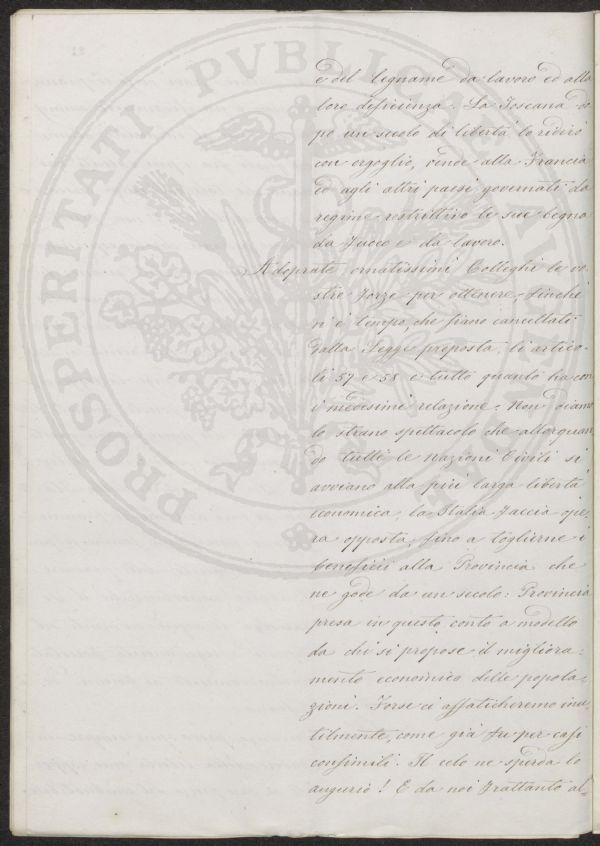 e del legname da lavoro ed alla
loro deficienza. La Toscana do
po un secolo di libertà lo ridirò
con orgoglio, vende alla Francia
ed agli altri paesi governati da
regime restrittivo le sue legna
da fuoco e da lavoro.
Adoprate ornatissimi Colleghi le vo
stre forze per ottenere, finchè
vi è tempo, che siano cancellati
dalla Legge proposta, li artico-
li 57 e 58 e tutto quanto ha con
i medesimi relazione. Non diamo
lo strano spettacolo che allorquan
do tutte le nazioni Civili si
avviano alla più larga libertà
economica, la Italia faccia ope-
ra opposta, fino a toglierne i
benefici alla Provincia che
ne gode da un secolo: Provincia
presa in questo conto a modello
da chi si propose il migliora-
mento economico delle popola-
zioni. Forse ci affaticheremo inu
tilmente, come già fu per casi
consimili. Il cielo ne sperda lo
augurio! E da noi frattanto al-
PROSPERITATI PVBLICAE